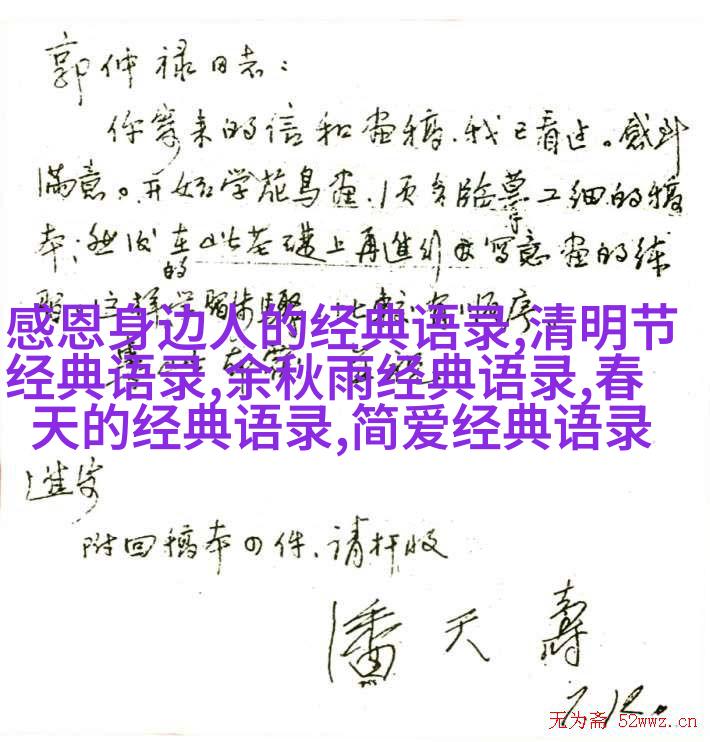 郭仲禄同志：
你寄来的信和画稿，我已看过。感到
满意。开始学花鸟画，须多临摹工细的稿
本；然后在此基础上再进行写意画的练
习。这样的学习步骤，比较有顺序，
感恩身边人的经典语录,清明节
经典语录,余秋雨经典语录,春
天的经典语录,简爱经典语录
进步
附回稿本四件，请检收
潘天寿
7.12.
无为斋 52wwz.cn